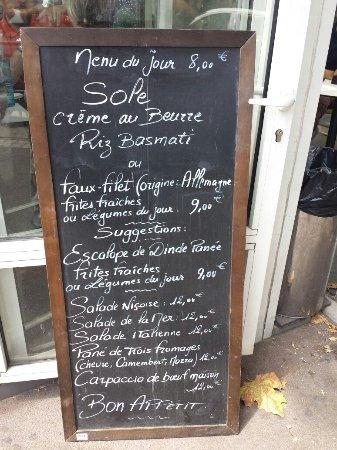 Menu du Jour 8,00€
Sole
Crème au Beurre
Riz Basmati
ou
Faux-filet (Origine: Allemagne
frites fraîches
ou Légumes du jour. 9,00€
Suggestions:
Escalope de Dinde Panée
Frites fraîches
ou Légumes du jour 9,00€
Salade Niçoise: 12,00€
Salade de la Mer: 12,00€
Salade italienne 12,00€
Pané de Trois fromages
(chevre, Camembert, Mozza) 12,00€
Carpaccio de bœuf maison
12,00€
Bon Appétit